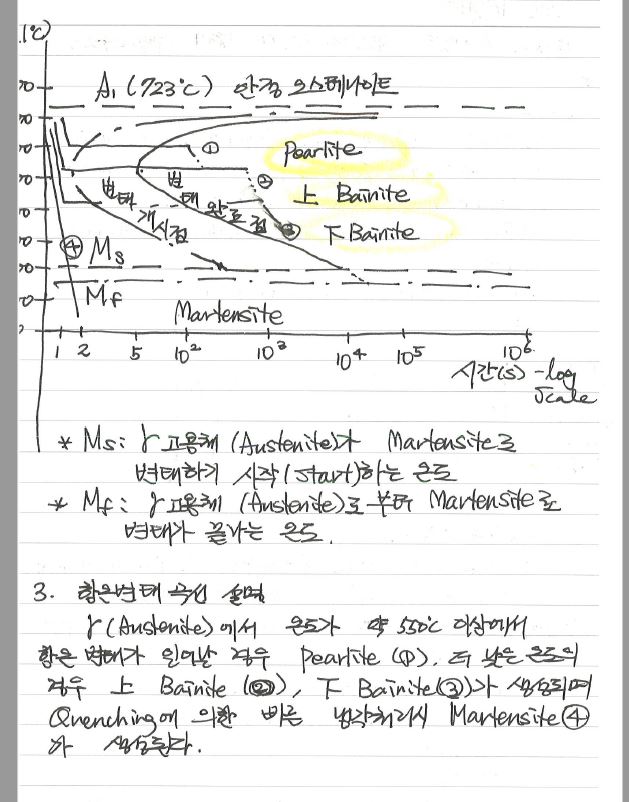 (℃)
A₁ (723℃) 안정 오스테나이트
① Pearlite
② 上 Bainite
③ 下 Bainite
변태 개시점
변태 완료점
④ Ms
Mf
Martensite
1 2 5 10² 10³ 10⁴ 10⁵ 10⁶
시간(s) - log
Scale
* Ms : γ 고용체 (Austenite)가 Martensite로
변태하기 시작(start)하는 온도
* Mf : γ 고용체 (Austenite)로 부터 Martensite로
변태가 끝나는 온도.
3. 항온변태 곡선 설명
γ (Austenite)에서 온도가 약 550℃ 이상에서
항온 변태가 일어날 경우 Pearlite (①), 더 낮은 온도의
경우 上 Bainite (②), 下 Bainite(③)가 생성되며
Quenching에 의한 빠른 냉각처리시 Martensite ④
가 생성된다.